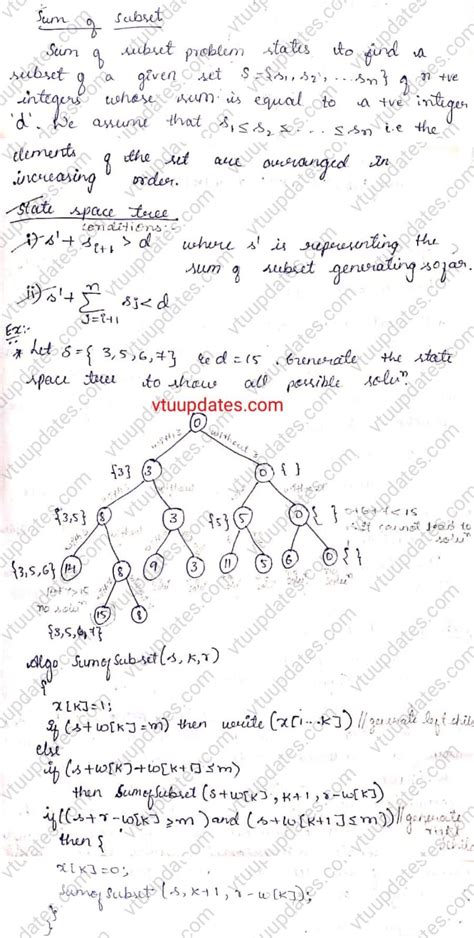 Sum of Subset
Sum of subset problem states to find a
subset of a given set S={s1, s2, ... sn} of n +ve
integers whose sum is equal to a +ve integer
'd'. We assume that s1 ≤ s2 ≤ ... ≤ sn i.e the
elements of the set are arranged in
increasing order.
State space tree
conditions:-
i) s' + si+1 > d where s' is representing the
sum of subset generating so far.
ii) s' + n Σ j=i+1 sj < d
Ex:-
* Let S = { 3, 5, 6, 7 } & d = 15. Generate the state
space tree to show all possible soluⁿ.
vtuupdates.com
0
with 3 without 3
{3} 3 0 { }
{3,5} 8 3 {5} 5 0 { } 0+6+7<15
It cannot lead to
soluⁿ
{3,5,6} 14 8 9 3 11 5 6 0 { }
14+7>15
no soluⁿ 15 8
{3,5,6,7}
Algo SumofSubset(s, k, r)
{
x[k]=1;
if (s+w[k]=m) then write (x[1...k]) // generate left child
else
if (s+w[k]+w[k+1]≤m)
then SumofSubset (s+w[k], k+1, r-w[k])
if((s+r-w[k] ≥m) and (s+w[k+1]≤m)) // generate
right
child
then {
x[k]=0;
SumofSubset (s, k+1, r-w[k]);
}
}